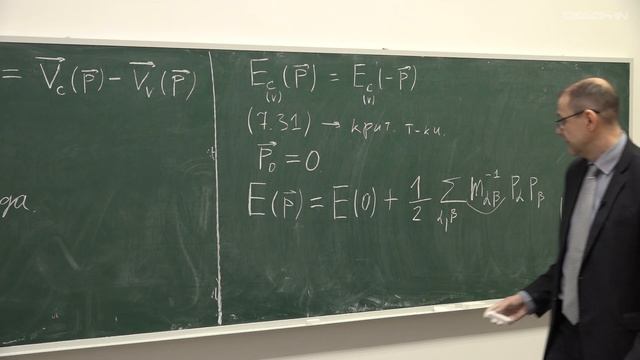 = V⃗_c(p⃗) − V⃗_v(p⃗)
да.
E_c(v)(p⃗) = E_c(v)(−p⃗)
(7.31) → крит. т-ки.
p⃗_0 = 0
E(p⃗) = E(0) + 1/2 Σ_{α,β} m_{αβ}^{-1} P_α P_β